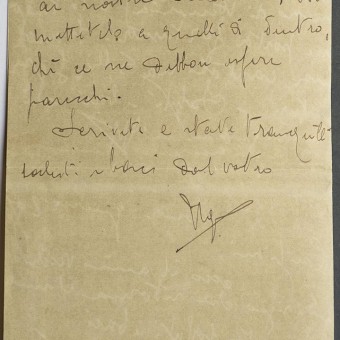 ai nostri
mettetelo a quelli di dentro,
chi ce ne debbon essere
parecchi.
Scrivete e state tranquilli
saluti e baci dal vostro